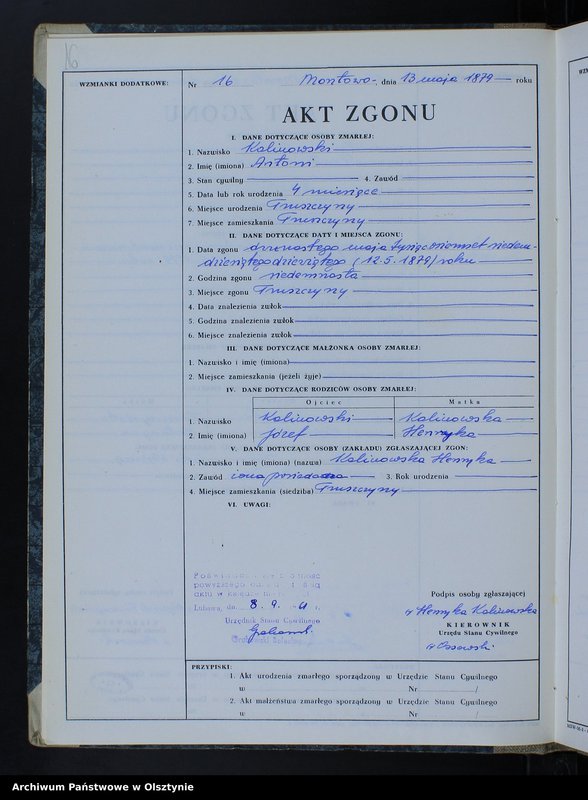 16
WZMIANKI DODATKOWE:
Nr 16 Montowo, dnia 13 maja 1879 roku
AKT ZGONU
I. DANE DOTYCZĄCE OSOBY ZMARŁEJ:
1. Nazwisko Kalinowski
2. Imię (imiona) Antoni
3. Stan cywilny 4. Zawód
5. Data lub rok urodzenia 4 miesiące
6. Miejsce urodzenia Truszczyny
7. Miejsce zamieszkania Truszczyny
II. DANE DOTYCZĄCE DATY I MIEJSCA ZGONU:
1. Data zgonu dwunastego maja tysiąc osiemset siedem-
dziesiątego dziewiątego (12.5.1879) roku
2. Godzina zgonu siedemnasta
3. Miejsce zgonu Truszczyny
4. Data znalezienia zwłok
5. Godzina znalezienia zwłok
6. Miejsce znalezienia zwłok
III. DANE DOTYCZĄCE MAŁŻONKA OSOBY ZMARŁEJ:
1. Nazwisko i imię (imiona)
2. Miejsce zamieszkania (jeżeli żyje)
IV. DANE DOTYCZĄCE RODZICÓW OSOBY ZMARŁEJ:
Ojciec Matka
1. Nazwisko Kalinowski Kalinowska
2. Imię (imiona) Józef Henryka
V. DANE DOTYCZĄCE OSOBY (ZAKŁADU) ZGŁASZAJĄCEJ ZGON:
1. Nazwisko i imię (imiona) (nazwa) Kalinowska Henryka
2. Zawód żona posiadacza 3. Rok urodzenia
4. Miejsce zamieszkania (siedziba) Truszczyny
VI. UWAGI:
powyższego
aktu w księdze
Lubawa, dn. 8. 9. r.
Urzędnik Stanu Cywilnego
Podpis osoby zgłaszającej
Henryka Kalinowska
KIEROWNIK
Urzędu Stanu Cywilnego
Ossowski
PRZYPISKI:
1. Akt urodzenia zmarłego sporządzony w Urzędzie Stanu Cywilnego
w Nr /
2. Akt małżeństwa zmarłego sporządzony w Urzędzie Stanu Cywilnego
w Nr /
Archiwum Państwowe w Olsztynie